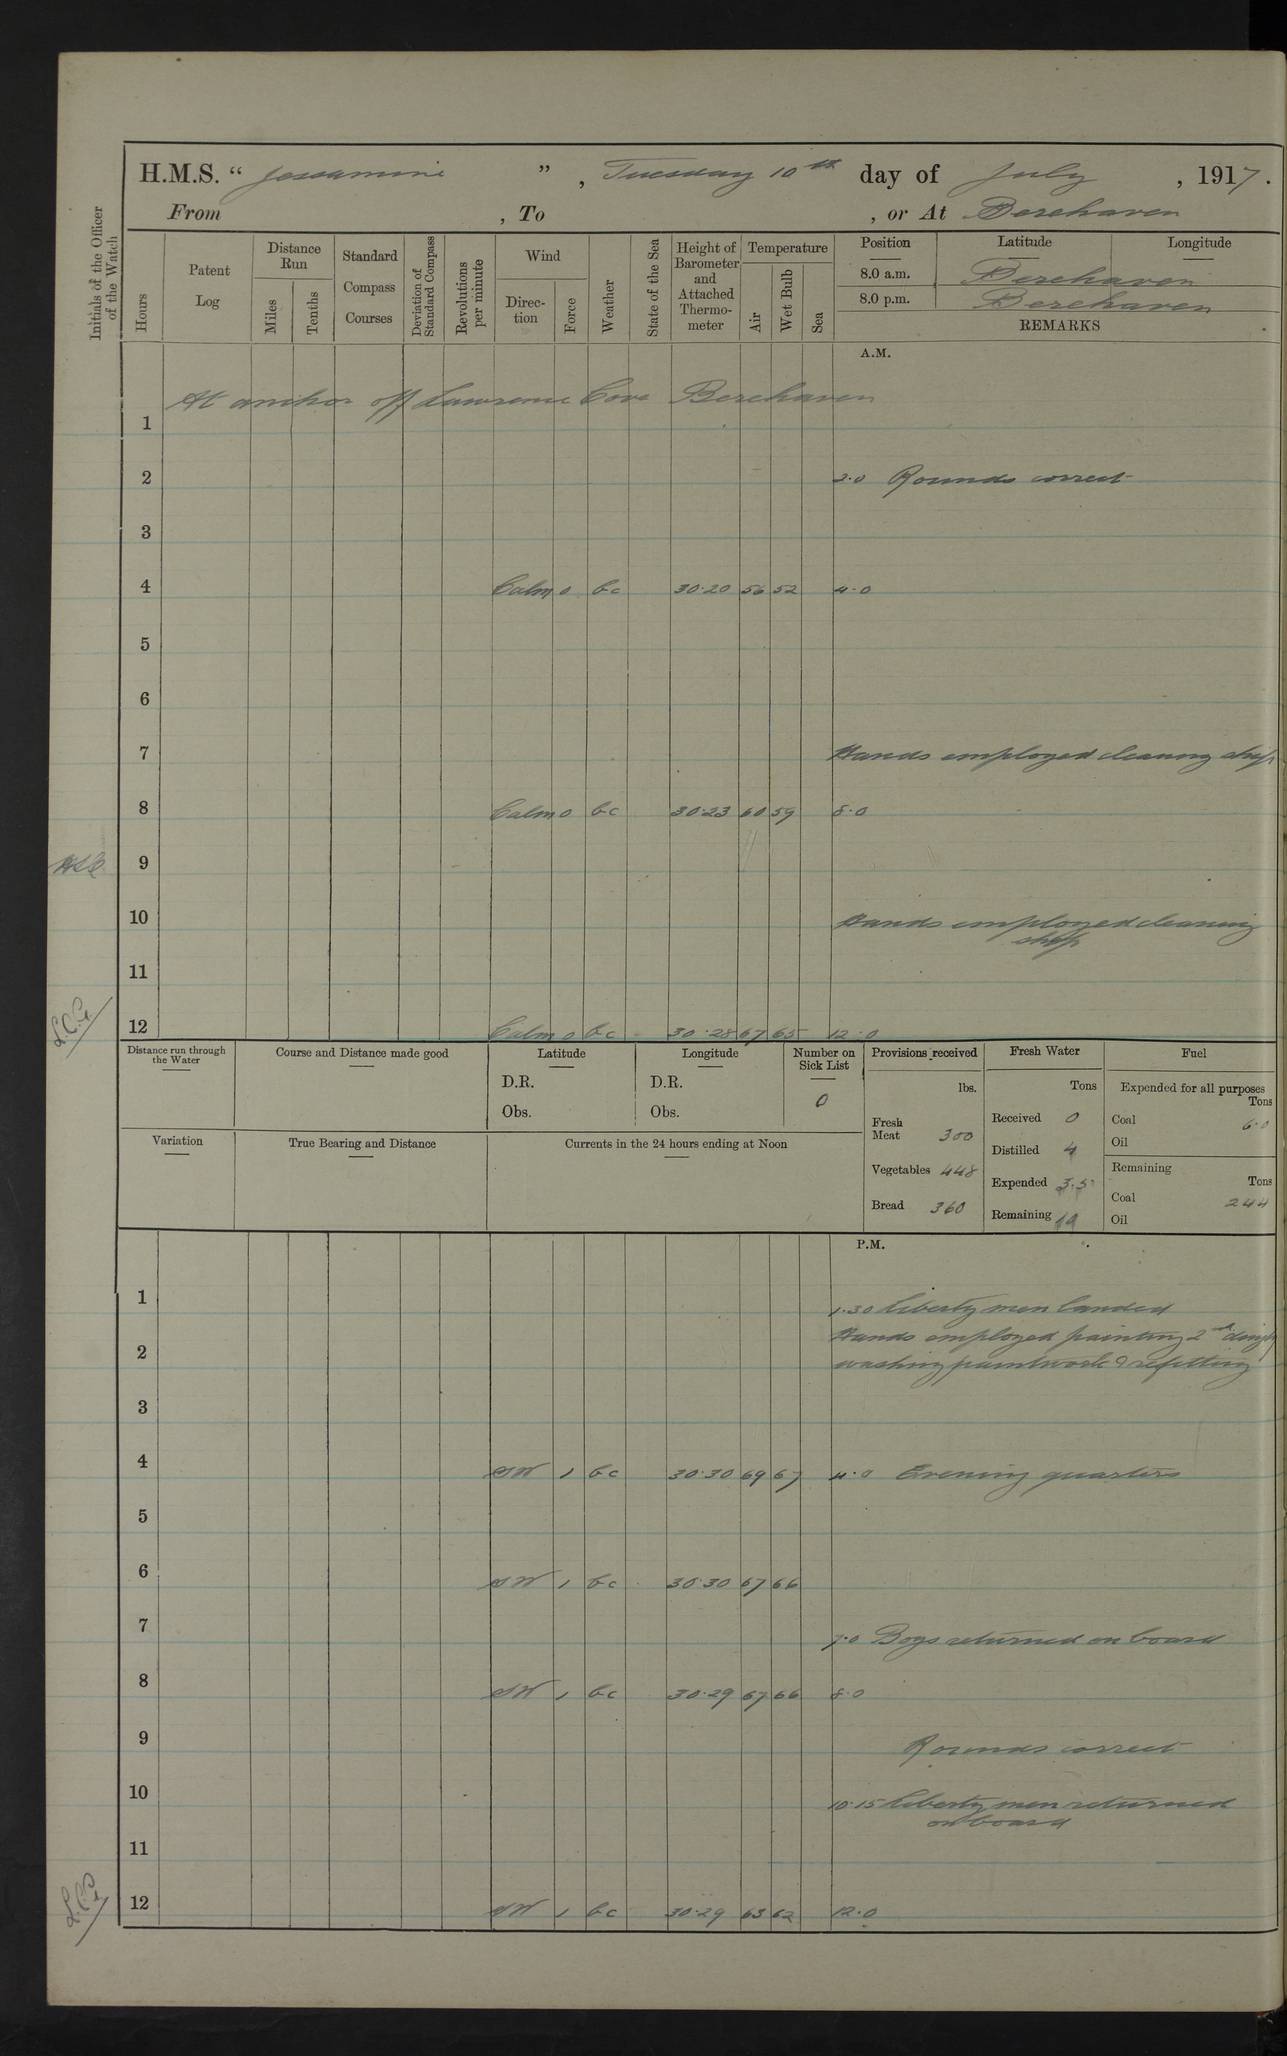 H.M.S. " Jessamine ", Tuesday 10th day of July, 1917.
From , To , or At Berehaven
Initials of the Officer of the Watch
Hours
Patent Log
Distance Run
Miles
Tenths
Standard Compass Courses
Deviation of Standard Compass
Revolutions per minute
Wind
Direc-tion
Force
Weather
State of the Sea
Height of Barometer and Attached Thermo-meter
Temperature
Air
Wet Bulb
Sea
Position Latitude Longitude
8.0 a.m. Berehaven
8.0 p.m. Berehaven
REMARKS
A.M.
At anchor off Lawrence Cove Berehaven
1
2 2.0 Rounds correct
3
4 Calm 0 bc 30.20 56 52 4.0
5
6
7 Hands employed cleaning ship
8 Calm 0 bc 30.23 60 59 8.0
9
10 Hands employed cleaning
ship
11
L.C.G.
12 Calm 0 bc 30.28 67 65 12.0
Distance run through the Water
Course and Distance made good
Latitude
D.R.
Obs.
Longitude
D.R.
Obs.
Number on Sick List
0
Provisions received
lbs.
Fresh Meat 300
Vegetables 448
Bread 360
Fresh Water
Tons
Received 0
Distilled 4
Expended 3.5
Remaining 19
Fuel
Expended for all purposes
Tons
Coal 6.0
Oil
Remaining
Tons
Coal 244
Oil
Variation
True Bearing and Distance
Currents in the 24 hours ending at Noon
P.M.
1 1.30 Liberty men landed
Hands employed painting 2nd dinghy
2 washing paintwork & refitting
3
4 SW 1 bc 30.30 69 67 4.0 Evening quarters
5
6 SW 1 bc 30.30 67 66
7 7.0 Boys returned on board
8 SW 1 bc 30.29 67 66 8.0
9 Rounds correct
10 10.15 Liberty men returned
on board
11
L.C.G.
12 SW 1 bc 30.29 63 62 12.0